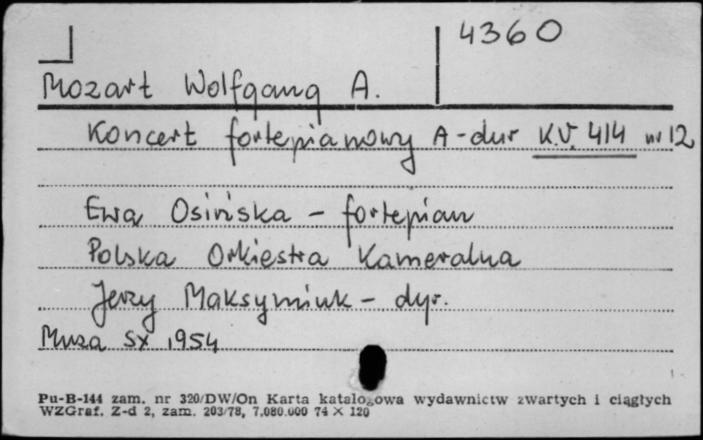 4360
Mozart Wolfgang A.
Koncert fortepianowy A-dur K.V. 414 nr 12
Ewa Osińska - fortepian
Polska Orkiestra Kameralna
Jerzy Maksymiuk - dyr.
Muza SX 1954
Pu-B-144 zam. nr 320/DW/On Karta katalogowa wydawnictw zwartych i ciągłych
WZGraf. Z-d 2, zam. 203/78, 7.080.000 74 × 120